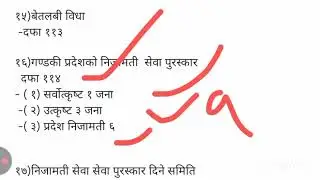 १५)बेतलबी विधा
-दफा ११३
१६)गण्डकी प्रदेशको निजामती सेवा पुरस्कार
दफा ११४
- ( १) सर्वोत्कृष्ट १ जना
- ( २) उत्कृष्ट ३ जना
- ( ३) प्रदेश निजामती ६
१७)निजामती सेवा सेवा पुरस्कार दिने समिति